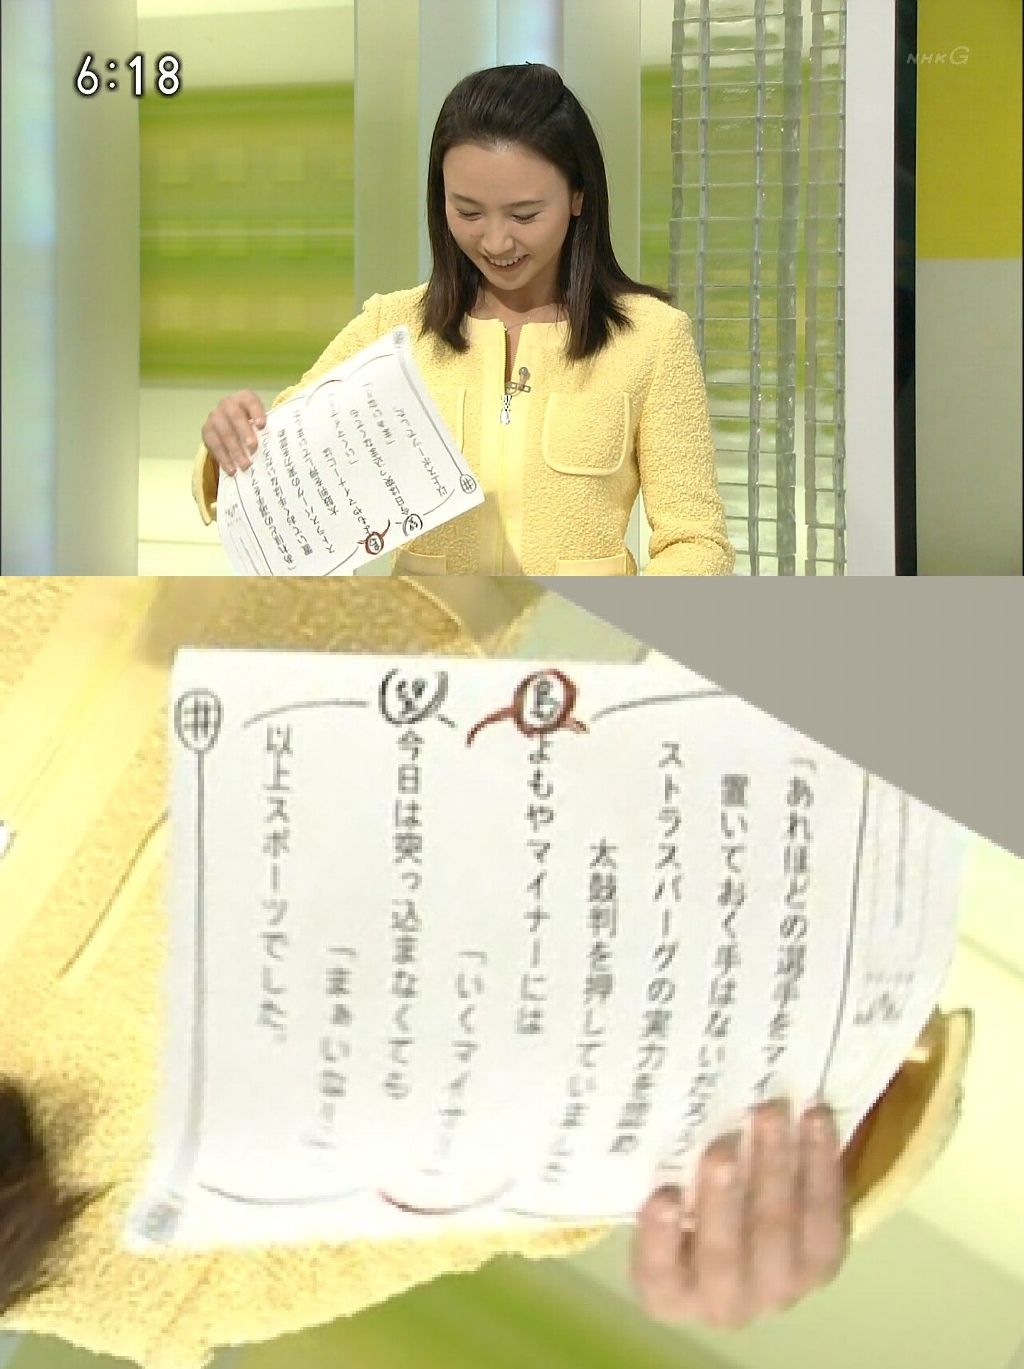 6:18
NHK G
「あれほどの選手をマイ
置いておく手はないだろう」
ストラスバーグの実力を認め
太鼓判を押していました
よもやマイナーには
「いくマイナー」
今日は突っ込まなくても
「まぁいなー」
以上スポーツでした。